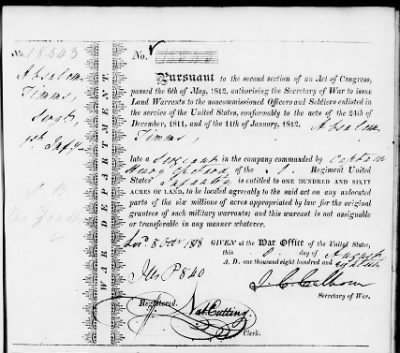 No. 18.543
Absalom
Timms,
Sergt.
1st Infy
WAR DEPARTMENT.
No.
Pursuant to the second section of an Act of Congress,
passed the 6th of May, 1812, authorising the Secretary of War to issue
Land Warrants to the noncommissioned Officers and Soldiers enlisted in
the service of the United States, conformably to the acts of the 24th of
December, 1811, and of the 11th of January, 1812, Absalom
Timms
late a Sergeant in the company commanded by Captain
Henry of the Regiment United
States' Infantry is entitled to ONE HUNDRED AND SIXTY
ACRES OF LAND, to be located agreeably to the said act on any unlocated
parts of the six millions of acres appropriated by law for the original
grantees of such military warrants; and this warrant is not assignable
or transferable in any manner whatever.
GIVEN at the War Office of the United States,
this day of August
A. D. one thousand eight hundred and eighteen
J. C. Calhoun
Secretary of War.
Registered.
Nat. Cutting.
Clerk.